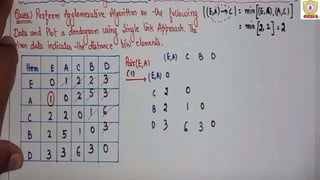 Ques) Perform Agglomerative Algorithm on the following
Data and Plot a dendogram using Single Link Approach. The
given data indicates the distance b/w elements.
Item E A C B D
E 0 1 2 2 3
A 1 0 2 5 3
C 2 2 0 1 6
B 2 5 1 0 3
D 3 3 6 3 0
Pair(E,A)
(1)
(E,A) C B D
(E,A) 0
C 2 0
B 2 1 0
D 3 6 3 0
[(E,A)→C] = min[(E,C),(A,C)]
= min[2,2] = 2